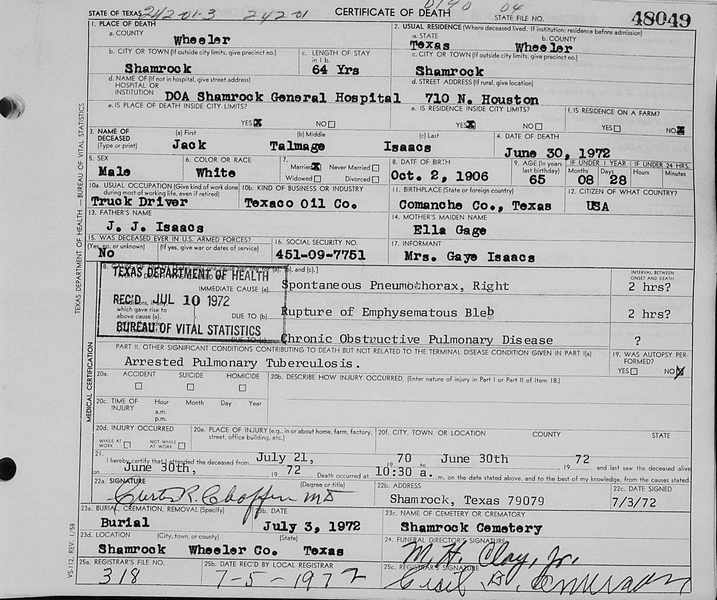 STATE OF TEXAS 242-01-3 24201 CERTIFICATE OF DEATH 0140 04 STATE FILE NO. 48049
1. PLACE OF DEATH 2. USUAL RESIDENCE (Where deceased lived. If institution: residence before admission)
a. COUNTY Wheeler a. STATE Texas b. COUNTY Wheeler
b. CITY OR TOWN (If outside city limits, give precinct no.) Shamrock c. LENGTH OF STAY in 1 b. 64 Yrs c. CITY OR TOWN (If outside city limits, give precinct no.) Shamrock
d. NAME OF (If not in hospital, give street address) HOSPITAL OR INSTITUTION DOA Shamrock General Hospital d. STREET ADDRESS (If rural, give location) 710 N. Houston
e. IS PLACE OF DEATH INSIDE CITY LIMITS? YES X NO e. IS RESIDENCE INSIDE CITY LIMITS? YES X NO f. IS RESIDENCE ON A FARM? YES NO X
3. NAME OF DECEASED (Type or print) (a) First Jack (b) Middle Talmage (c) Last Isaacs 4. DATE OF DEATH June 30, 1972
5. SEX Male 6. COLOR OR RACE White 7. Married X Never Married Widowed Divorced 8. DATE OF BIRTH Oct. 2, 1906 9. AGE (In years last birthday) 65 IF UNDER 1 YEAR Months 08 Days 28 IF UNDER 24 HRS. Hours Minutes
10a. USUAL OCCUPATION (Give kind of work done during most of working life, even if retired) Truck Driver 10b. KIND OF BUSINESS OR INDUSTRY Texaco Oil Co. 11. BIRTHPLACE (State or foreign country) Comanche Co., Texas 12. CITIZEN OF WHAT COUNTRY? USA
13. FATHER'S NAME J. J. Isaacs 14. MOTHER'S MAIDEN NAME Ella Gage
15. WAS DECEASED EVER IN U.S. ARMED FORCES? (Yes, no, or unknown) No (If yes, give war or dates of service) 16. SOCIAL SECURITY NO. 451-09-7751 17. INFORMANT Mrs. Gaye Isaacs
TEXAS DEPARTMENT OF HEALTH
REC'D JUL 10 1972
BUREAU OF VITAL STATISTICS
INTERVAL BETWEEN ONSET AND DEATH
IMMEDIATE CAUSE (a) Spontaneous Pneumothorax, Right 2 hrs?
which gave rise to above cause (a) DUE TO (b) Rupture of Emphysematous Bleb 2 hrs?
DUE TO (c) Chronic Obstructive Pulmonary Disease ?
PART II. OTHER SIGNIFICANT CONDITIONS CONTRIBUTING TO DEATH BUT NOT RELATED TO THE TERMINAL DISEASE CONDITION GIVEN IN PART I(a) 19. WAS AUTOPSY PERFORMED?
Arrested Pulmonary Tuberculosis. YES NO X
20a. ACCIDENT SUICIDE HOMICIDE 20b. DESCRIBE HOW INJURY OCCURRED. (Enter nature of injury in Part I or Part II of item 18.)
20c. TIME OF INJURY Hour a.m. p.m. Month Day Year
20d. INJURY OCCURRED WHILE AT WORK NOT WHILE AT WORK 20e. PLACE OF INJURY (e.g., in or about home, farm, factory, street, office building, etc.) 20f. CITY, TOWN, OR LOCATION COUNTY STATE
21. I hereby certify that I attended the deceased from July 21, 19 70 to June 30th 19 72 and last saw the deceased alive
on June 30th, 19 72 Death occurred at 10:30 a. m, on the date stated above, and to the best of my knowledge, from the causes stated.
22a. SIGNATURE (Degree or title) MD 22b. ADDRESS Shamrock, Texas 79079 22c. DATE SIGNED 7/3/72
23a. BURIAL, CREMATION, REMOVAL (Specify) Burial 23b. DATE July 3, 1972 23c. NAME OF CEMETERY OR CREMATORY Shamrock Cemetery
23d. LOCATION (City, town, or county) (State) Shamrock Wheeler Co. Texas 24. FUNERAL DIRECTOR'S SIGNATURE M. H. Clay, Jr.
25a. REGISTRAR'S FILE NO. 318 25b. DATE REC'D BY LOCAL REGISTRAR 7-5-1972 25c. REGISTRAR'S SIGNATURE
TEXAS DEPARTMENT OF HEALTH — BUREAU OF VITAL STATISTICS
MEDICAL CERTIFICATION
VS-112, REV. 1/58